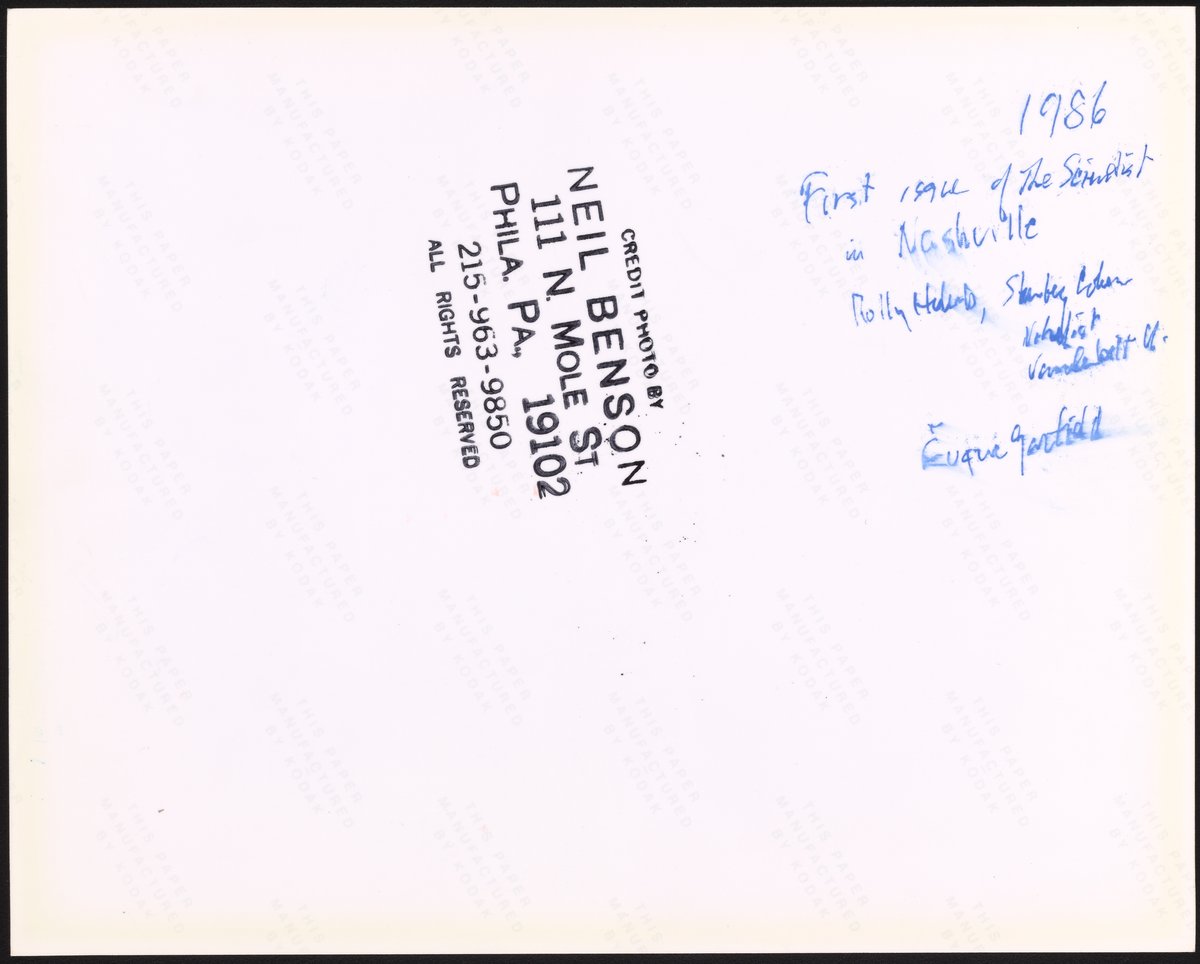 1986
First issue of The Scientist
in Nashville
Stanley Cohen
Nobelist
Vanderbilt U.
Eugene Garfield
CREDIT PHOTO BY
NEIL BENSON
111 N. MOLE ST
PHILA. PA., 19102
215-963-9850
ALL RIGHTS RESERVED
THIS PAPER
MANUFACTURED
BY KODAK